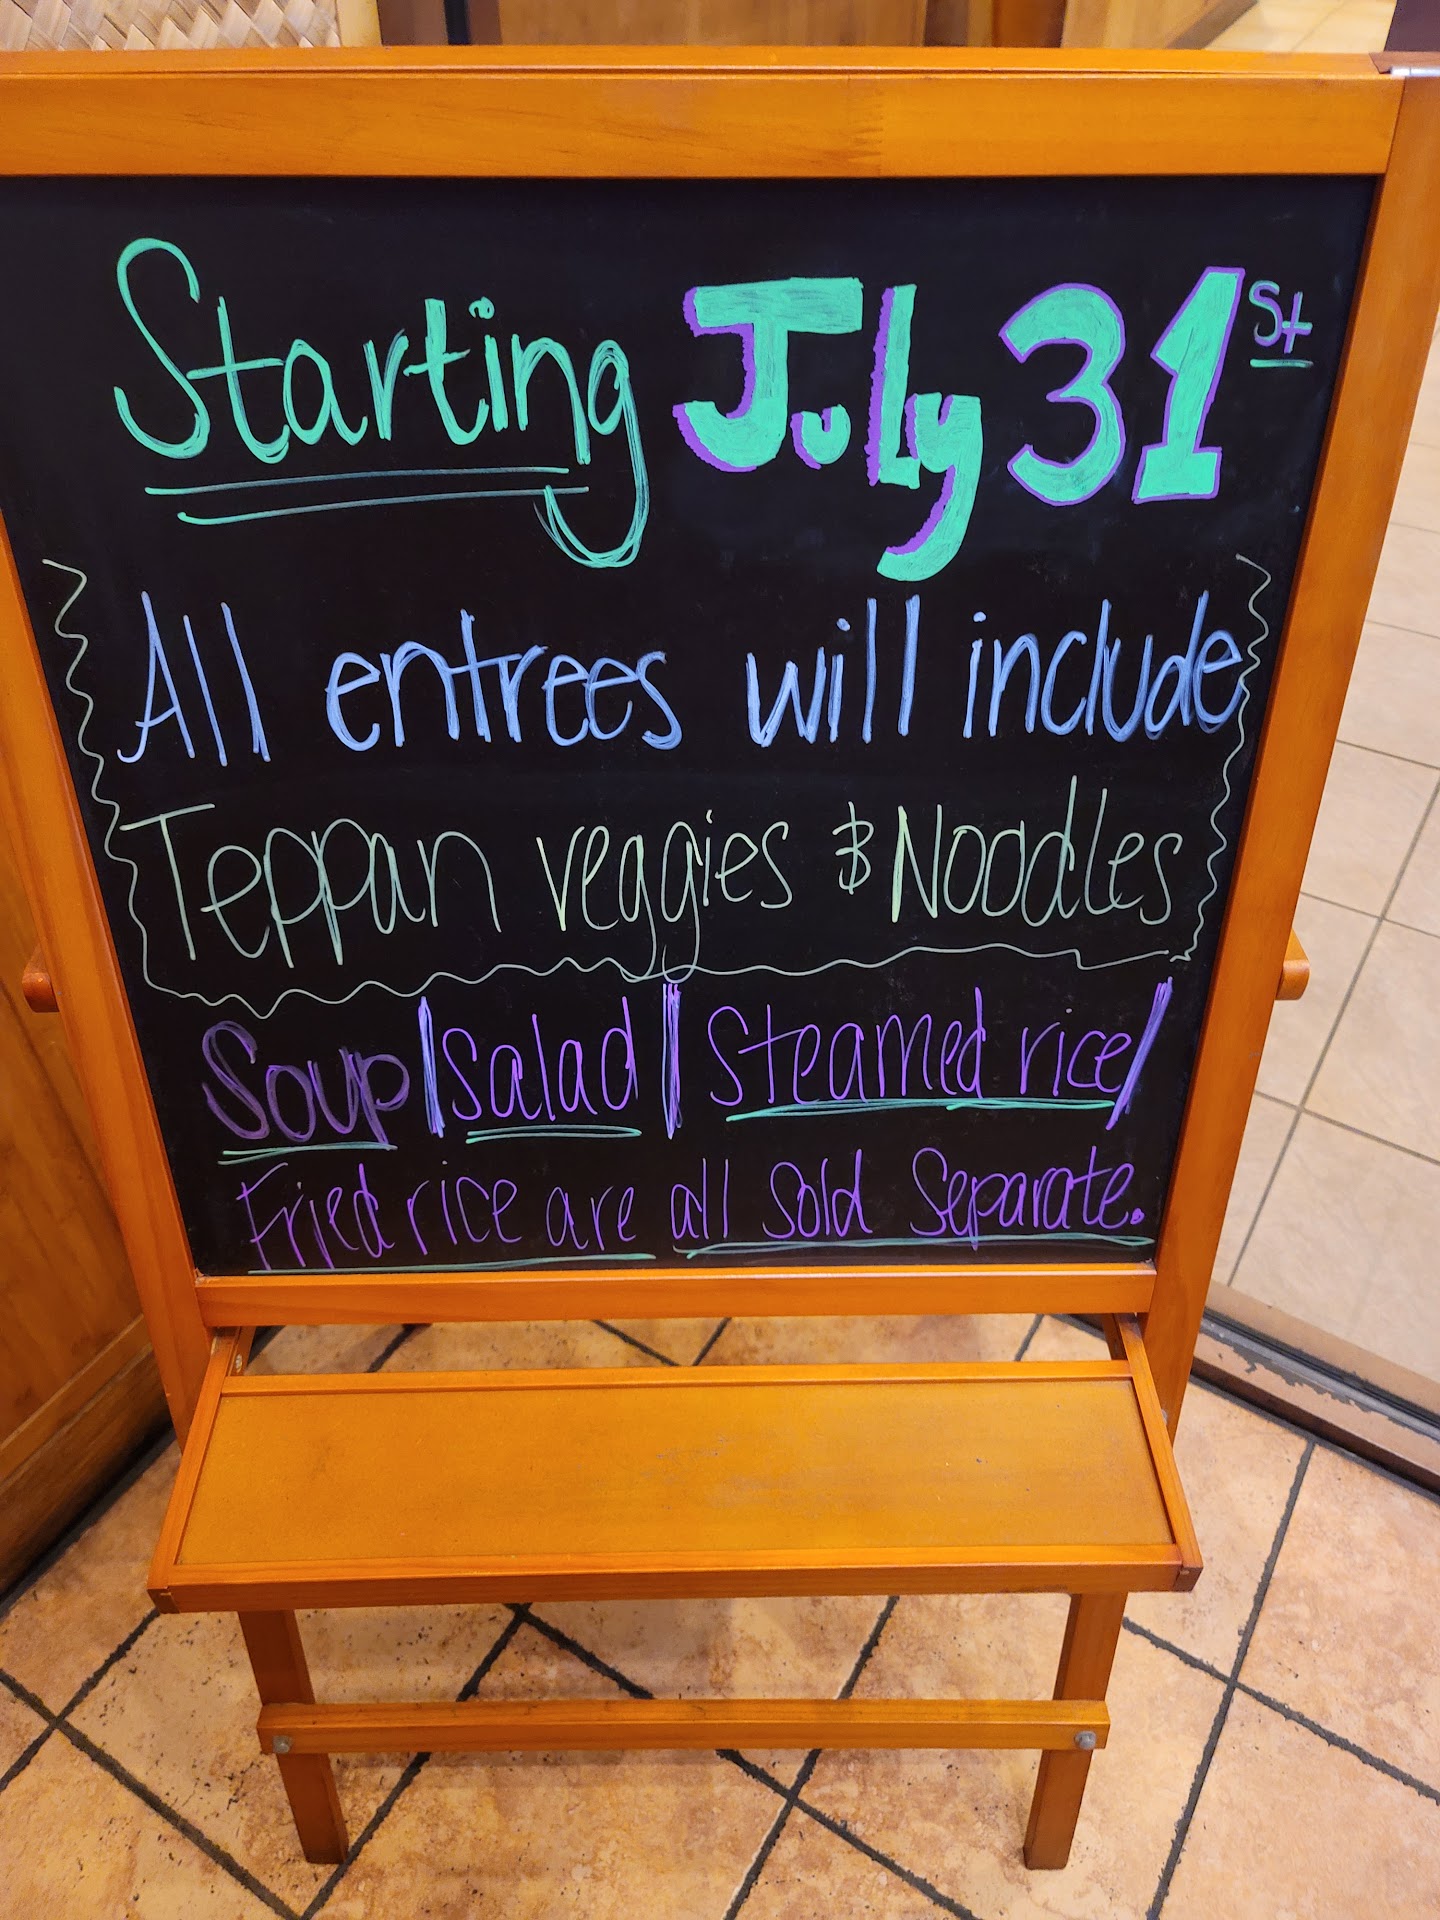 Starting July 31st
All entrees will include
Teppan veggies & Noodles
Soup | Salad | Steamed rice /
Fried rice are all Sold Separate.